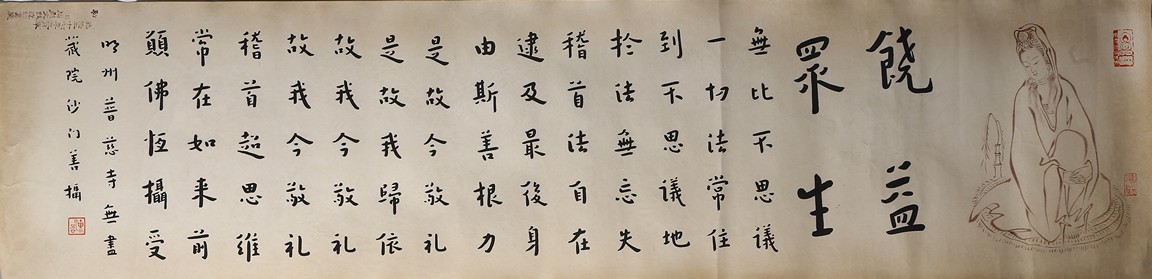 饒益
眾生
無比不思議
一切法常住
到不思議地
於法無忘失
稽首法自在
逮及最後身
由斯善根力
是故今敬礼
是故我歸依
故我今敬礼
故我今敬礼
稽首超思維
常在如来前
願佛恆攝受
明州普慈寺無盡
藏院沙门善攝